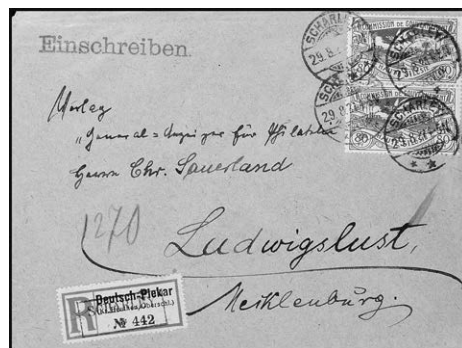 Einschreiben.
COMMISSION DE GOUVERNEMENT
SCHARLEY
29.8.21
Verlag
„General=Anzeiger für Philatelie
Herrn Chr. Sauerland
1270
Ludwigslust,
Mecklenburg.
R
Deutsch-Piekar
№ 442